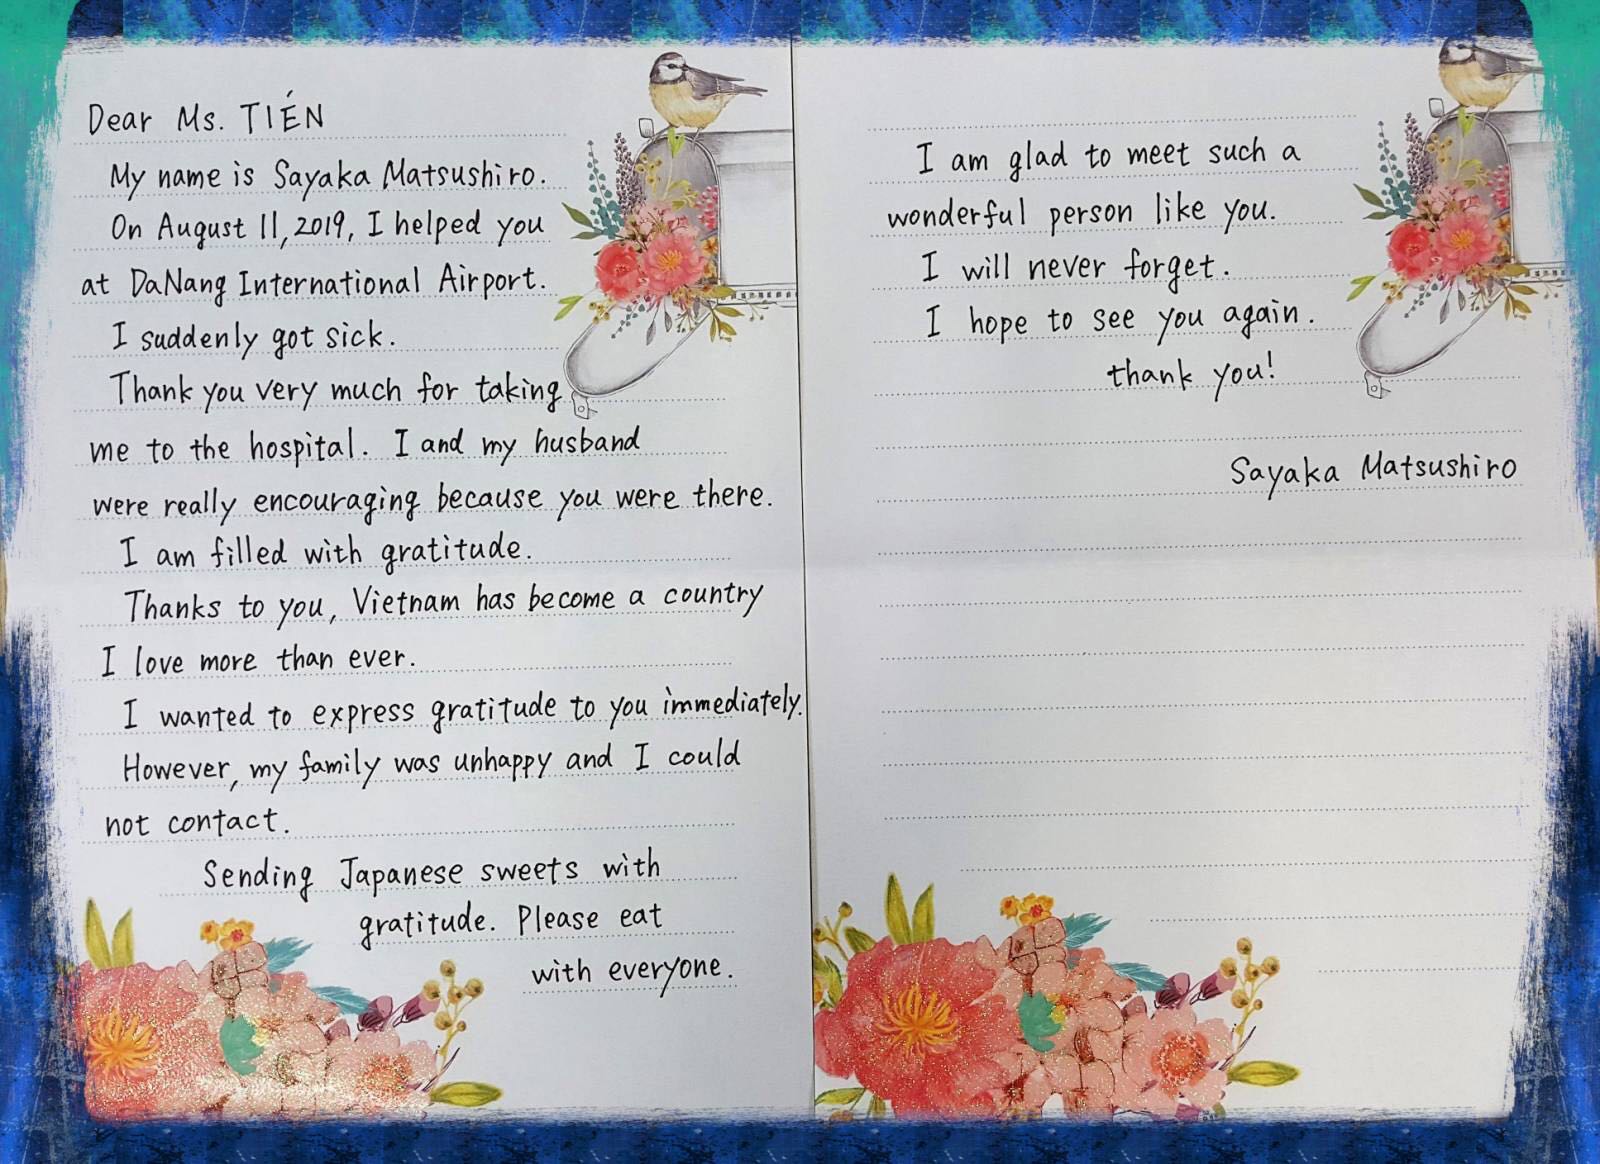 Dear Ms. TIÉN
My name is Sayaka Matsushiro.
On August 11, 2019, I helped you
at DaNang International Airport.
I suddenly got sick.
Thank you very much for taking
me to the hospital. I and my husband
were really encouraging because you were there.
I am filled with gratitude.
Thanks to you, Vietnam has become a country
I love more than ever.
I wanted to express gratitude to you immediately.
However, my family was unhappy and I could
not contact.
Sending Japanese sweets with
gratitude. Please eat
with everyone.
I am glad to meet such a
wonderful person like you.
I will never forget.
I hope to see you again.
thank you!
Sayaka Matsushiro